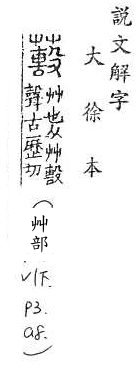 說文解字
大徐本
艸也从艸毄
聲古歷切
(艸部
v1下.
p3.
a8.)